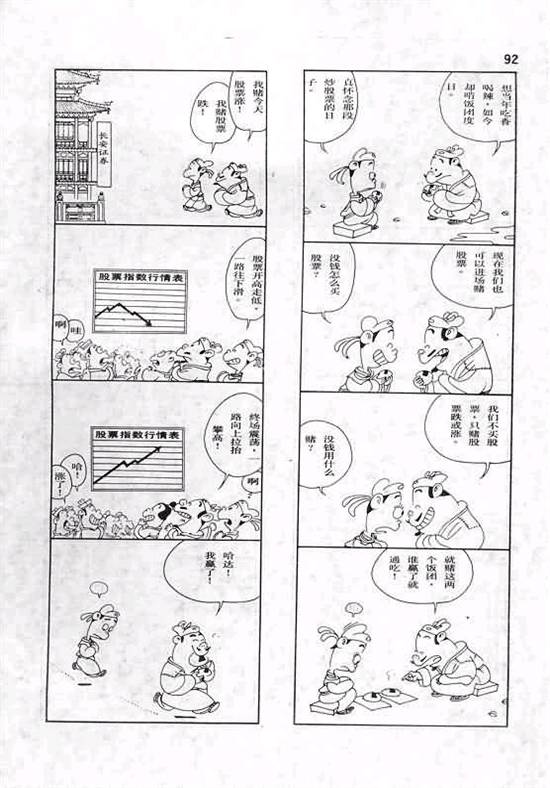 92
想当年吃香
喝辣，如今
却啃饭团度
日。
真怀念那段
炒股票的日
子。
现在我们也
可以进场赌
股票。
没钱怎么买
股票？
我们不买股
票，只赌股
票跌或涨。
没钱用什么
赌？
就赌这两
个饭团，
谁赢了就
通吃！
我赌今天
股票涨！
我赌股票
跌！
长安证券
股票开高走低，
一路往下滑。
股票指数行情表
哇
啊
终场震荡，一
路向上拉抬
攀高！
股票指数行情表
啊
哈！
涨了！
哈达！
我赢了！